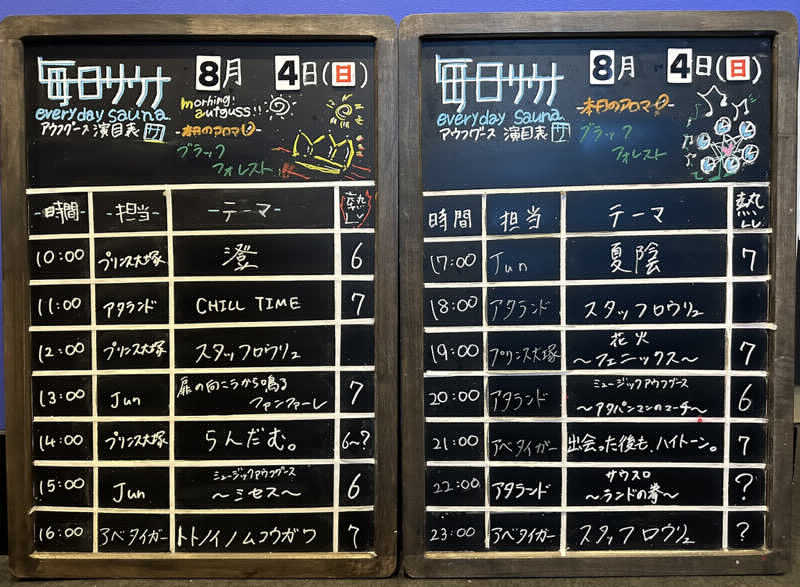 毎日サウナ 8月 4日(日)
everyday sauna.
アウフグース 演目表 サ
morning
aufguss!!
-本日のアロマ-
ブラック
フォレスト
-時間- -担当- -テーマ- 熱
10:00 プリンス大塚 澄 6
11:00 アタランド CHILL TIME 7
12:00 プリンス大塚 スタッフロウリュ
13:00 Jun 扉の向こうから鳴る
ファンファーレ 7
14:00 プリンス大塚 らんだむ。 6~?
ミュージックアウフグース
15:00 Jun ~ミセス~ 6
16:00 アベタイガー トトノイノムコウガワ 7
毎日サウナ 8月 4日(日)
everyday sauna.
アウフグース 演目表 サ
-本日のアロマ-
ブラック
フォレスト
時間 担当 テーマ 熱
17:00 Jun 夏陰 7
18:00 アタランド スタッフロウリュ
花火
19:00 プリンス大塚 ~フェニックス~ 7
ミュージックアウフグース
20:00 アタランド ~アタパンマンのマーチ~ 6
21:00 アベタイガー 出会った後も、ハイトーン。 7
サウスロ
22:00 アタランド ~ランドの拳~ ?
23:00 アベタイガー スタッフロウリュ ?